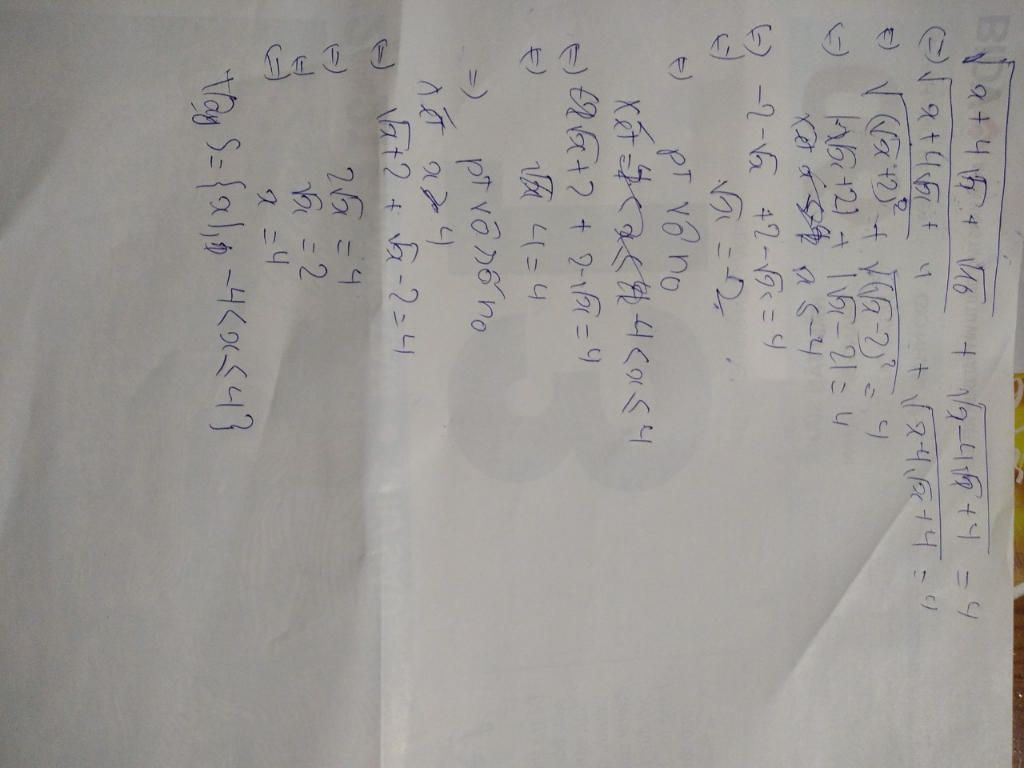 √(x + 4√x + √16) + √(x - 4√x + 4) = 4
(=) √(x + 4√x + 4) + √(x - 4√x + 4) = 4
(=) √((√x + 2)²) + √((√x - 2)²) = 4
(=) |√x + 2| + |√x - 2| = 4
xét x ≤ -4
(=) -2 - √x + 2 - √x = 4
(=) √x = -2
(=) pt vô n0
xét -4 < x ≤ 4
(=) √x + 2 + 2 - √x = 4
(=) 4 = 4
=) pt vô số n0
xét x > 4
(=) √x + 2 + √x - 2 = 4
(=) 2√x = 4
(=) √x = 2
(=) x = 4
Vậy S = {x | -4 < x ≤ 4}